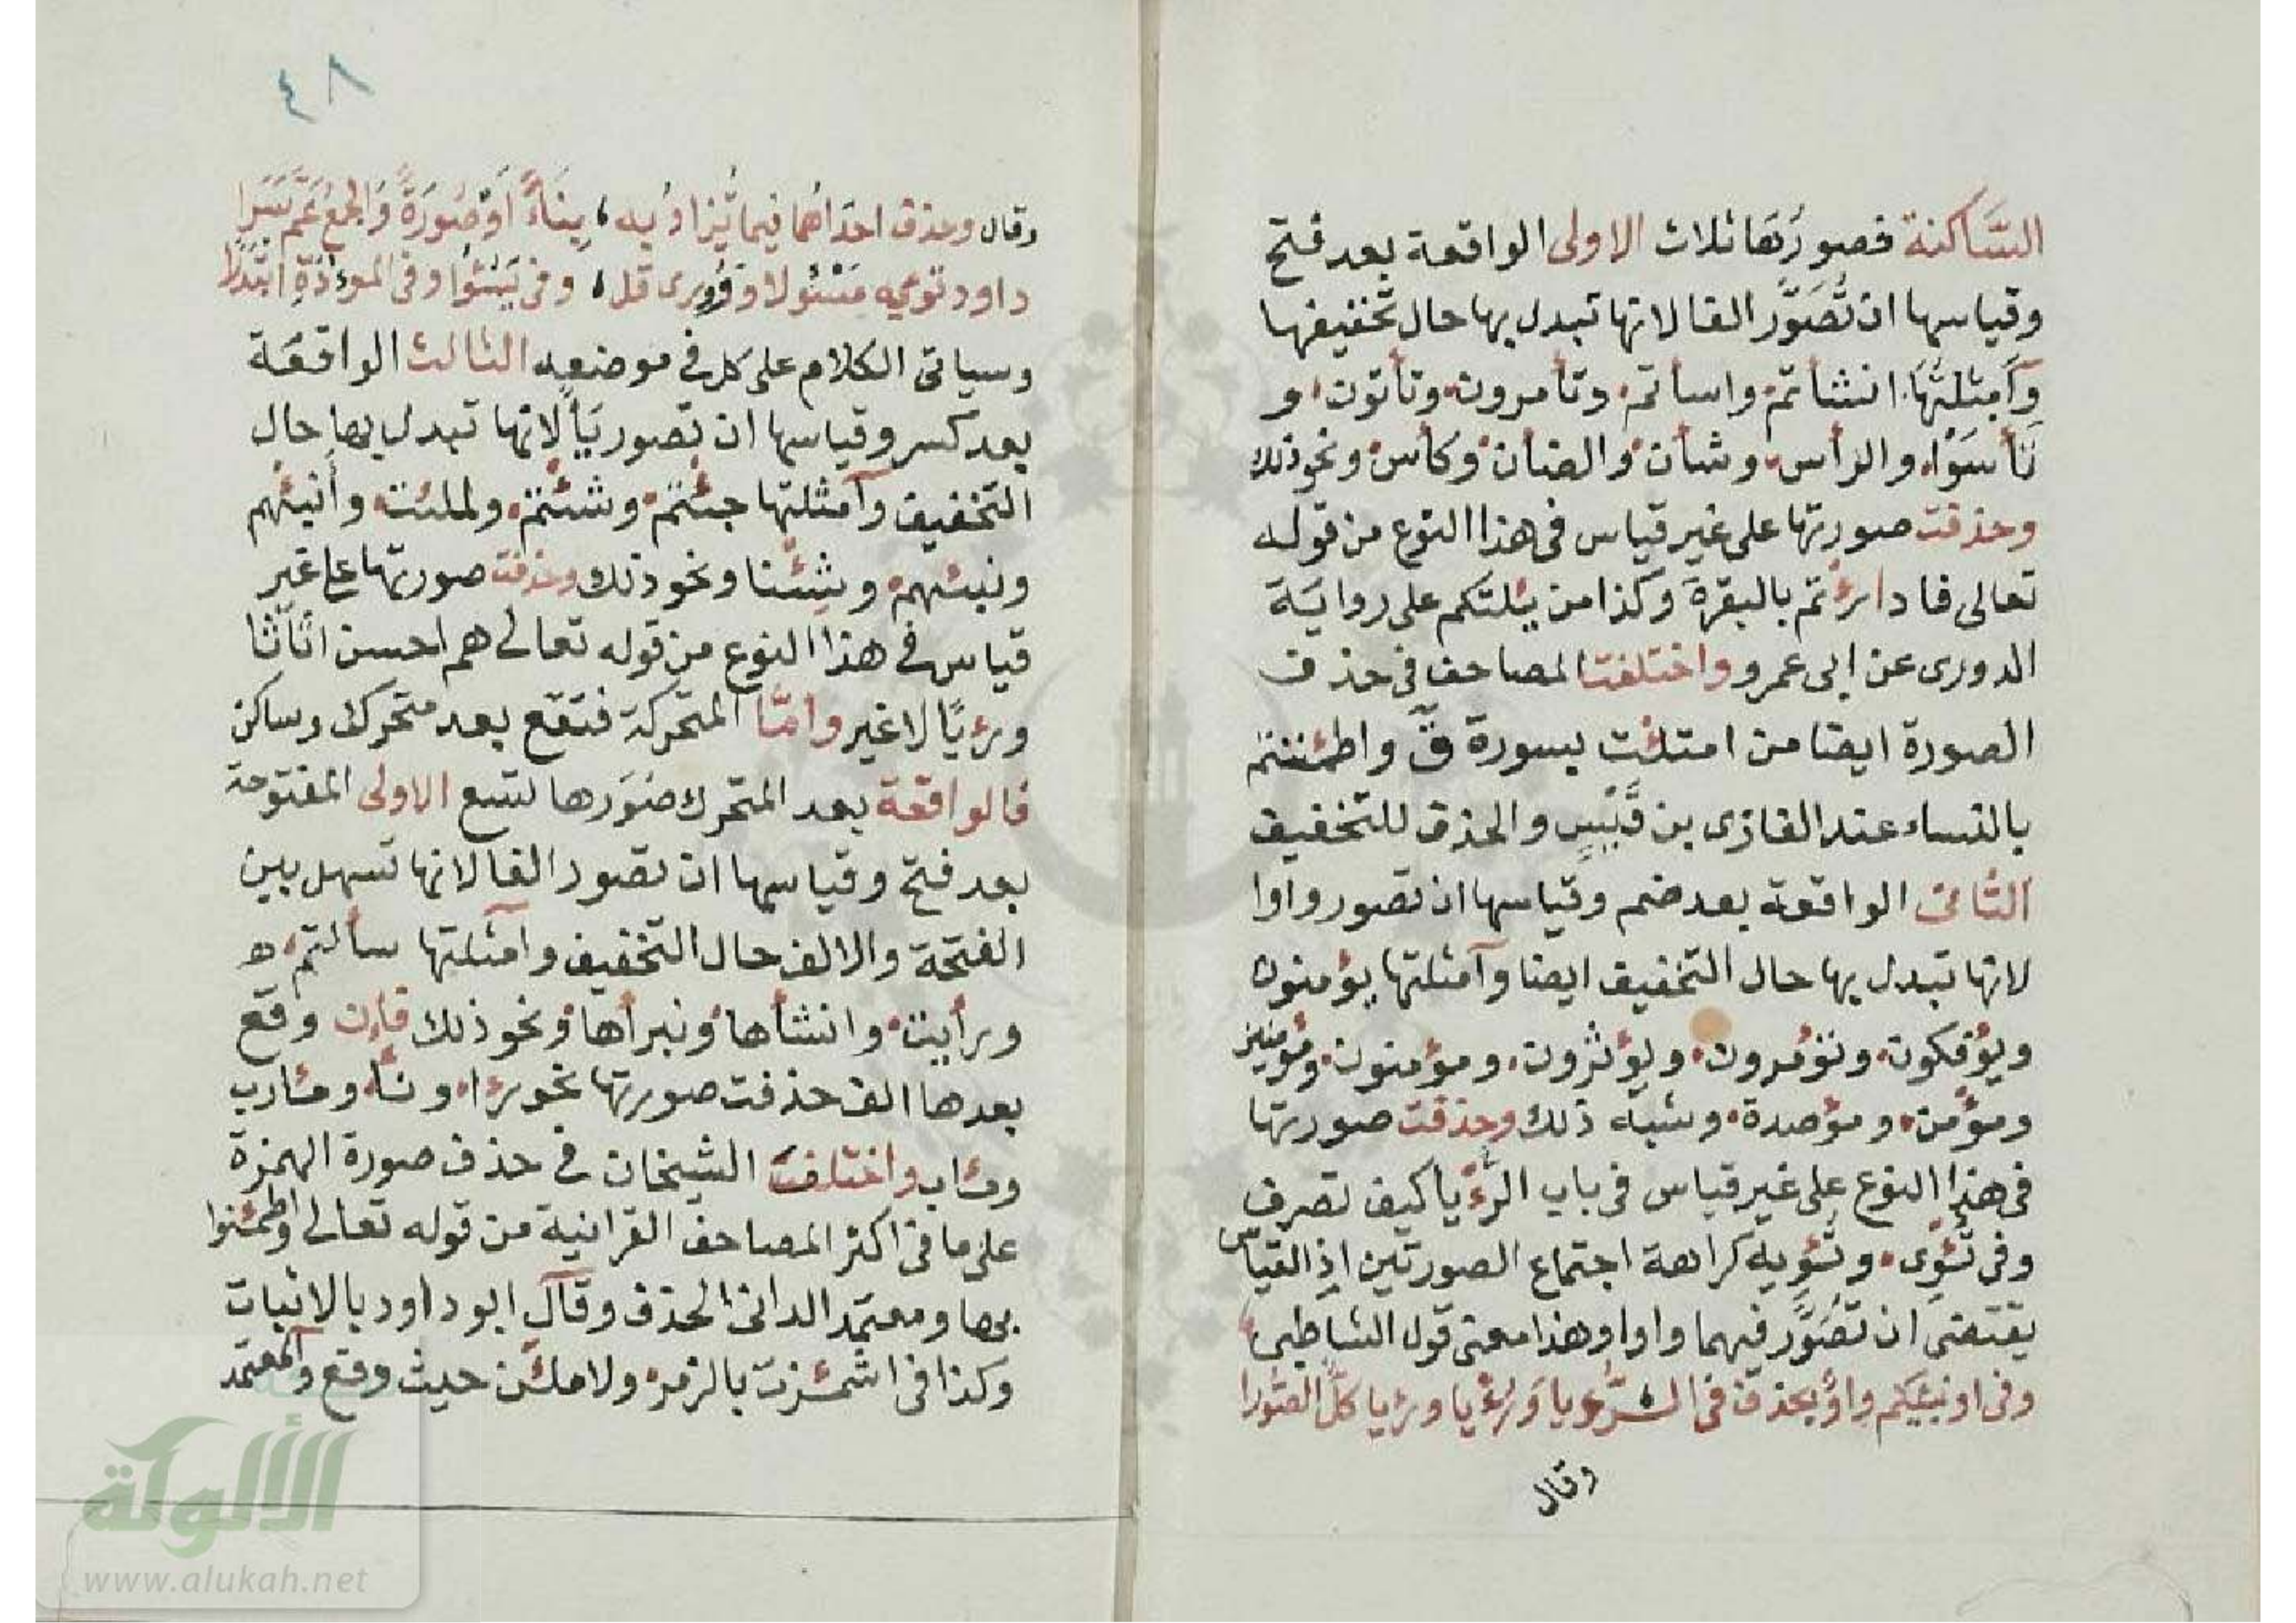 الساكنة فصورتها ثلاث الاولى الواقعة بعد فتح
وقياسها ان تُصَوَّر الفا لانها تبدل بها حال تخفيفها
وَأَمثلتُهَا انشأتم واسأتم وتأمرون وتأتون و
تَأْسَوْا والرأس وشأن والضأن وكأس ونحو ذلك
وحذفت صورتها على غير قياس فى هذا النوع من قوله
تعالى فادارءتم بالبقرة وكذا من يئلتكم على رواية
الدورى عن ابى عمرو واختلفت المصاحف فى حذف
الصورة ايضا من امتلئت بسورة ق واطمئننتم
بالنساء عند الغازى بن قيس والحذف للتخفيف
الثانى الواقعة بعد ضم وقياسها ان تصور واوا
لانها تبدل بها حال التخفيف ايضا وأمثلتها يؤمنون
ويؤفكون وتؤمرون ويؤثرون ومؤمنون ومؤمنين
ومؤمن ومؤصدة وشبه ذلك وحذفت صورتها
فى هذا النوع على غير قياس فى باب الرءيا كيف تصرف
وفى تئوى وتئويه كراهة اجتماع الصورتين اذ القياس
يقتضى ان تُصَوَّر فيهما واوا وهذا معنى قول الشاطبى
وفى اونبئكم واوٌ بحذف فى الرءيا ورءيا ورءيا كلٌّ الصورا
وقال
٤٨
وقال وحذف احداهما فيما يُزاد به بِنَاءً اَوْ صُورَةً وَالجمعُ عَمَّ سَرَا
داود تئويه مسئولا وورى قل وفى يَئُسوا وفى الموءدة ابتدرا
وسياتى الكلام على كل فى موضعه الثالث الواقعة
بعد كسر وقياسها ان تصور يَاً لانها تبدل بها حال
التخفيف وأمثلتها جئتم وشئتم ولملئت وأنبئهم
ونبئهم وشئنا ونحو ذلك وحذفت صورتها على غير
قياس فى هذا النوع من قوله تعالى هم احسن اثاثا
ورءيًا لا غير وامّا المتحركة فتقع بعد متحرك وساكن
فالواقعة بعد المتحرك صُوَرها تسع الاولى المفتوحة
بعد فتح وقياسها ان تصور الفا لانها تسهل بين
الفتحة والالف حال التخفيف وأمثلتها سألتم
ورأيت وانشأها ونبرأها ونحو ذلك فان وقع
بعدها الف حذفت صورتها نحو رءا ونئا ومئارب
ومئاب واختلفت الشيخان فى حذف صورة الهمزة
على ما فى اكثر المصاحف القرانية من قوله تعالى واطمئنوا
بها ومعتمد الدانى الحذف وقال ابو داود بالاثبات
وكذا فى اشمئزت بالزمر ولاملئن حيث وقع والمعتمد
الألوكة
www.alukah.net